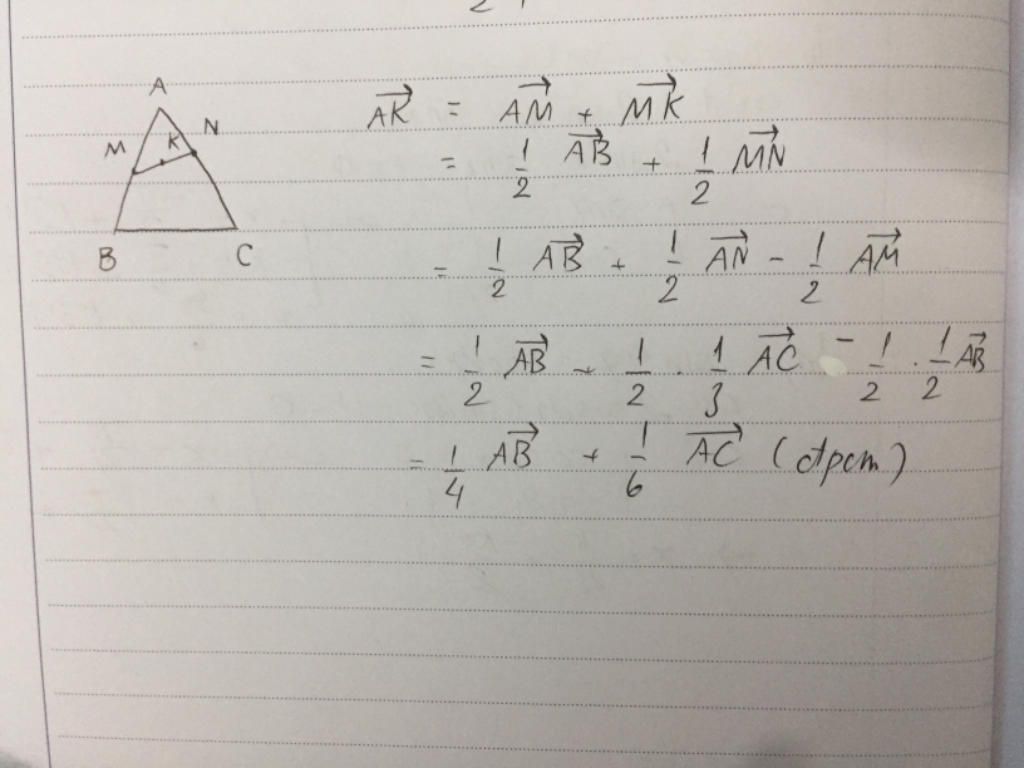 A
M K N
B C
$\overrightarrow{AK} = \overrightarrow{AM} + \overrightarrow{MK}$
$= \frac{1}{2} \overrightarrow{AB} + \frac{1}{2} \overrightarrow{MN}$
$= \frac{1}{2} \overrightarrow{AB} + \frac{1}{2} \overrightarrow{AN} - \frac{1}{2} \overrightarrow{AM}$
$= \frac{1}{2} \overrightarrow{AB} + \frac{1}{2} \cdot \frac{1}{3} \overrightarrow{AC} - \frac{1}{2} \cdot \frac{1}{2} \overrightarrow{AB}$
$= \frac{1}{4} \overrightarrow{AB} + \frac{1}{6} \overrightarrow{AC}$ (đpcm)